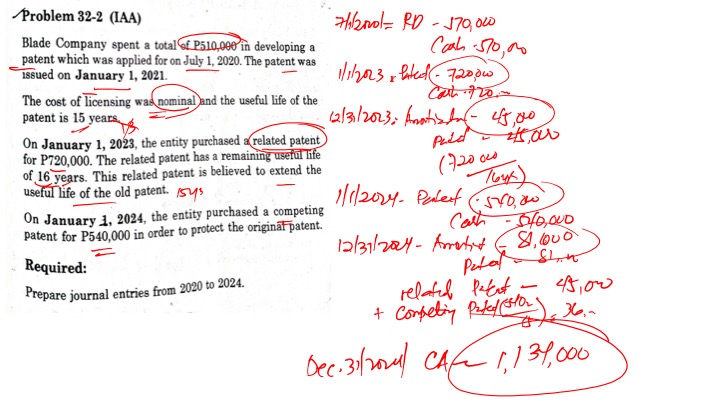 Problem 32-2 (IAA)
Blade Company spent a total of P510,000 in developing a
patent which was applied for on July 1, 2020. The patent was
issued on January 1, 2021.
The cost of licensing was nominal and the useful life of the
patent is 15 years.
On January 1, 2023, the entity purchased a related patent
for P720,000. The related patent has a remaining useful life
of 16 years. This related patent is believed to extend the
useful life of the old patent. 15yrs
On January 1, 2024, the entity purchased a competing
patent for P540,000 in order to protect the original patent.
Required:
Prepare journal entries from 2020 to 2024.
RD - 570,000
Cash - 510,000
1/1/2023 : Patent - 720,000
Cash - 720,-
12/31/2023: Amortization - 45,000
Patent - 45,000
(720 000
/16yrs)
1/1/2024 - Patent - 540,000
Cash - 540,000
12/31/2024 - Amortizat - 81,000
Patent 81,-
related Patent - 45,000
+ Competing Patent = 36,-
Dec. 31/2024 CA - 1,134,000